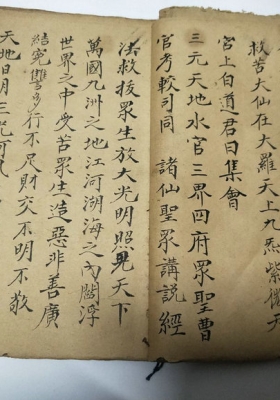 救苦大仙在大羅天上九炁紫微天
宮上白道君曰集會
三元天地水官三界四府眾聖曹
官考較司同 諸仙聖眾講説經
法救拔眾生放大光明照見天下
萬國九洲之地江河湖海之內閻浮
世界之中受苦眾生造惡非善廣
結寃讐多行不良財交不明不敬
天地日月三光